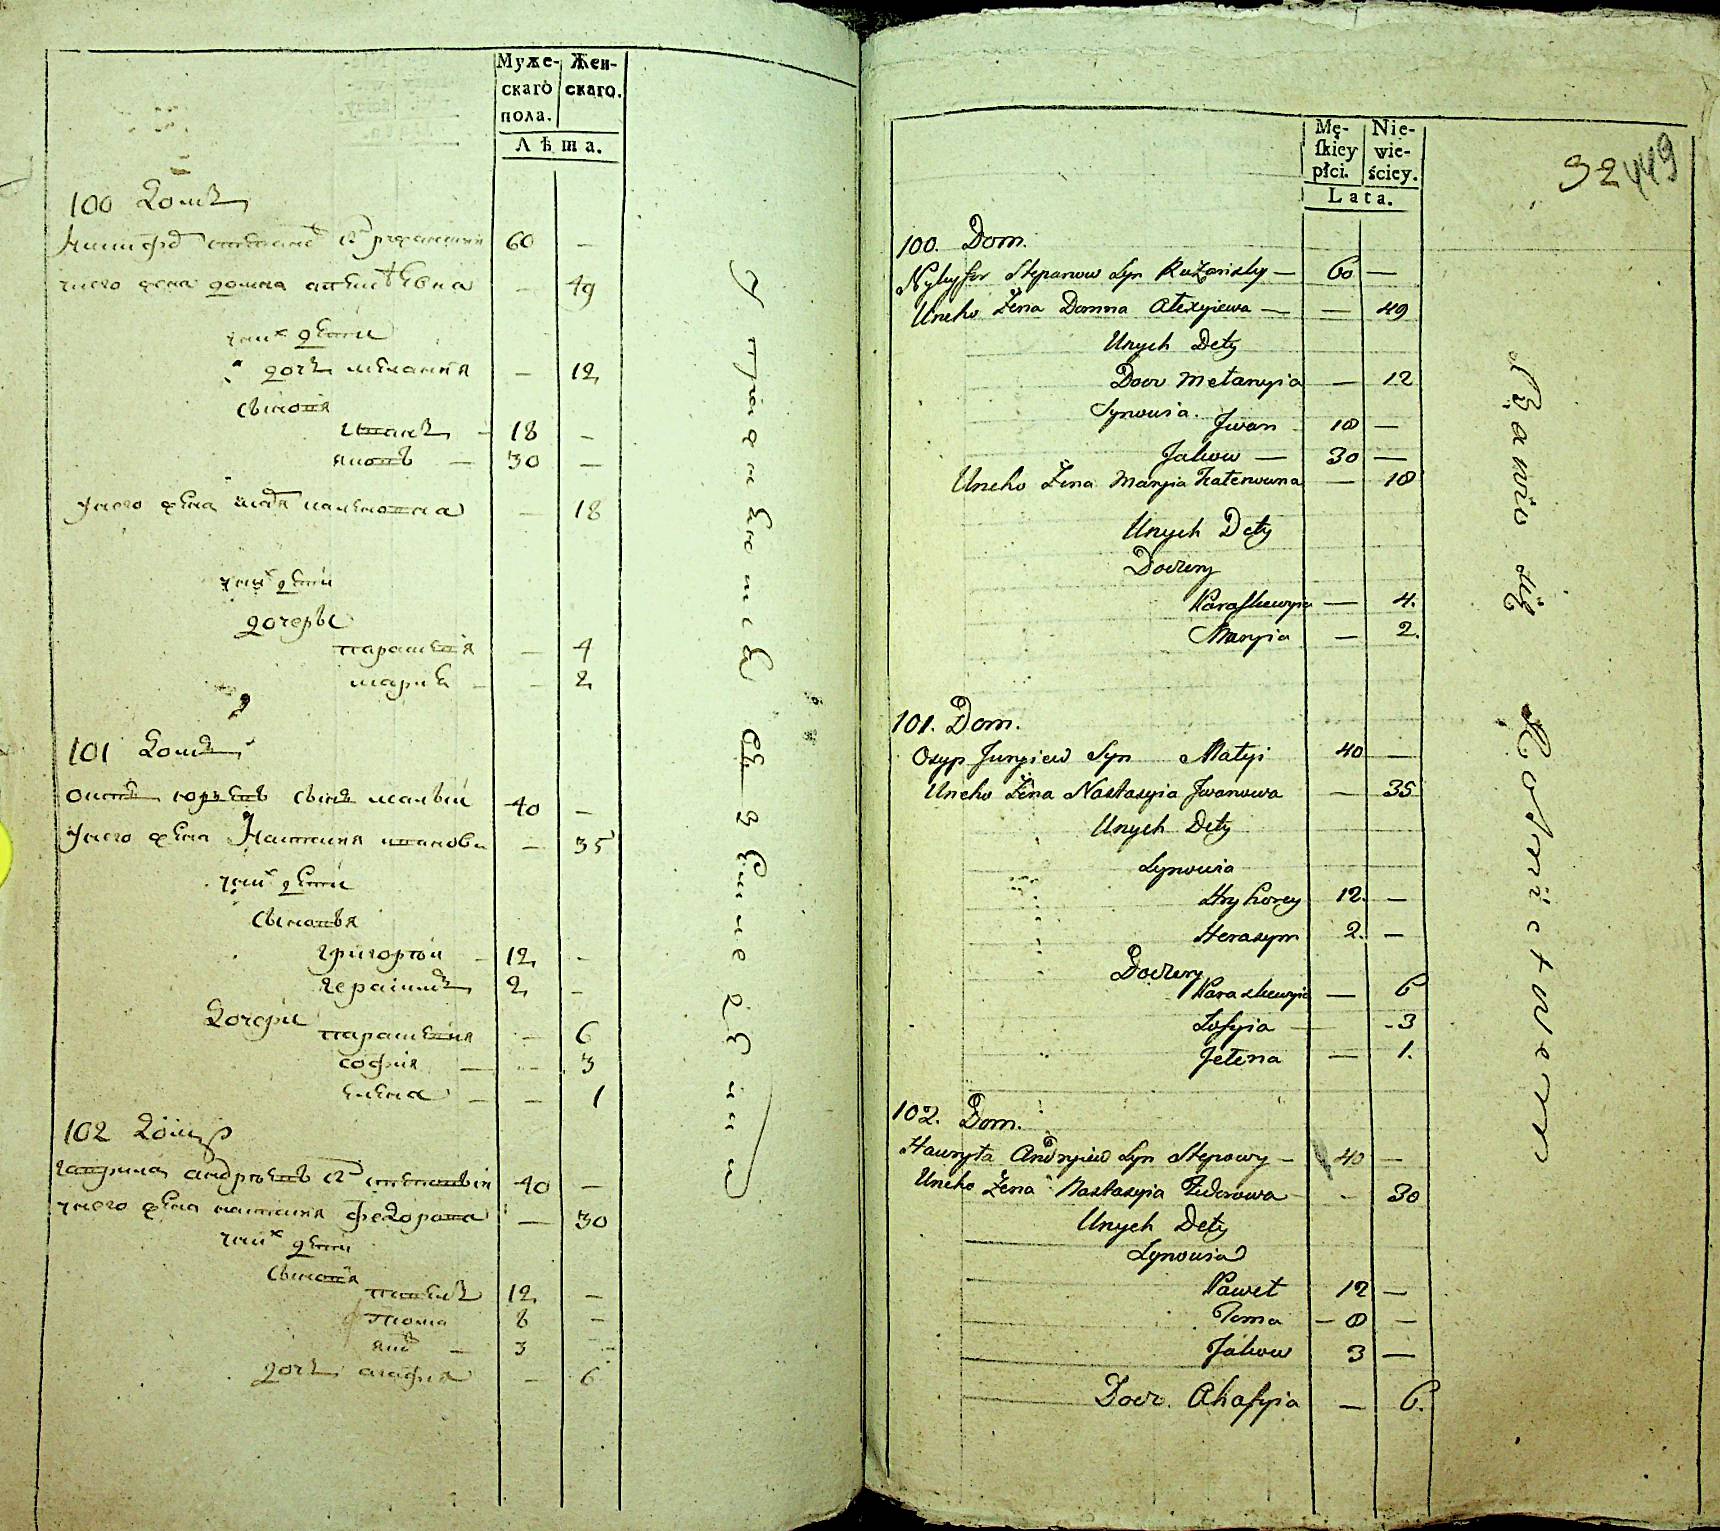 Муже-
скаго
пола.
Жен-
скаго.
Лѣта.
100 Домъ
60 —
унего жена домна алеѯѣевна — 49
уних дѣти
дочъ мелания — 12
сыновя
иванъ — 18 —
яковъ — 30 —
унего жена — 18
уних дѣти
дочеры
парасковія — 4
мария — 2
101 Домъ
осипъ юрьевъ сынъ малый 40 —
унего жена настасия иванова — 35
уних дѣти
сыновья
григорий — 12 —
герасимъ 2 —
дочери
парасковия — 6
софия — — 3
елена — — 1
102 Домъ
гаврила андрѣевъ 40 —
унего жена настасия федорова — 30
уних дѣти
сыновя
павелъ 12 —
тома 8 —
яков — 3 —
дочъ агафия — 6
упражняются въ земледелии
Mę-
skiey
płci.
Nie-
wie-
ściey.
Lata.
32 449
100. Dom.
Nykyfor Stepanow Syn Ružanskiy — 60 —
Uneho Žena Domna Alexyiewa — — 49
Unych Dety
Docz Mełanyia — 12
Synowia.
Jwan 18 —
Jakow — 30 —
Uneho Žena Maryia — 18
Unych Dety
Doczery
Paraskewyia — 4.
Maryia — 2.
101. Dom.
Osyp Juryiew Syn Małyi 40 —
Uneho Žena Nastasyia Jwanowa — 35
Unych Dety
Synowia
Hryhorey 12. —
Herasym 2. —
Doczery
Paraskewyia — 6
Sofyia — - 3
Jełena — 1.
102. Dom.
Hawryła Andryiew Syn Stepowy — 40 —
Uneho Žena Nastasyia Fedorowa — 30
Unych Dety
Synowia
Paweł 12 —
Toma — 8 —
Jakow 3 —
Docz. Ahafyia — 6.
Bawio się Rolnictwem